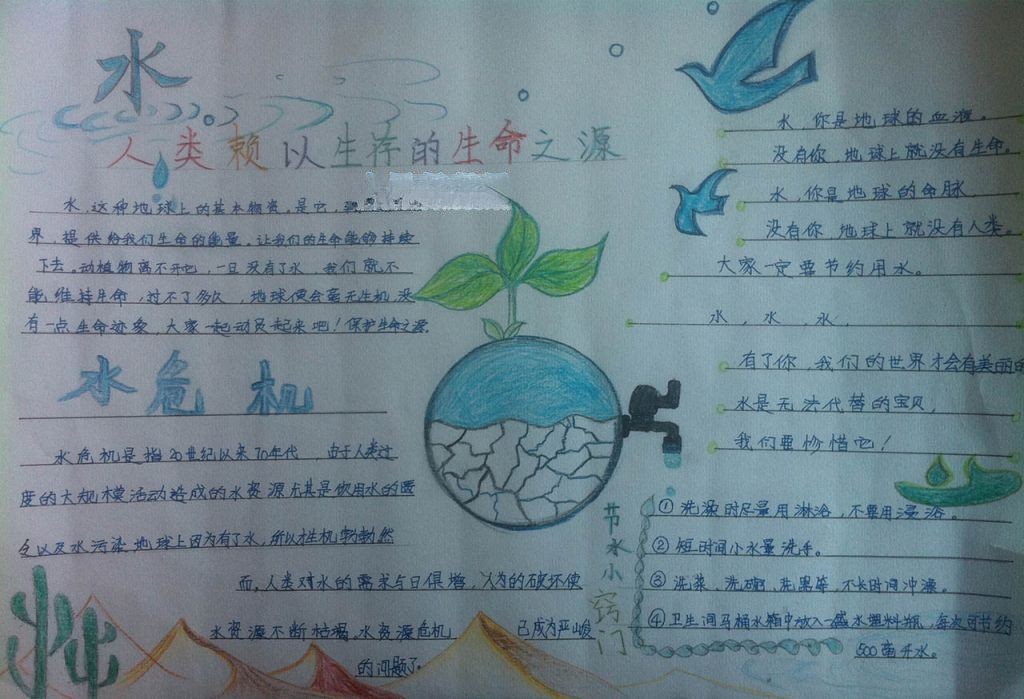 水
人类赖以生存的生命之源
水,这种地球上的基本物资。是它,
界,提供给我们生命的能量。让我们的生命能够持续
下去。动植物离不开它,一旦没有了水,我们就不
能维持生命,过不了多久,地球便会毫无生机,没
有一点生命迹象,大家一起动员起来吧!保护生命之源.
水危机
水危机是指20世纪以来70年代,由于人类过
度的大规模活动造成的水资源尤其是饮用水的匮
令以及水污染,地球上因为有了水,所以生机勃勃然
而,人类对水的需求与日俱增,人为的破坏使
水资源不断枯竭,水资源危机 已成为严峻
的问题了。
水,你是地球的血液。
没有你,地球上就没有生命。
水,你是地球的命脉
没有你,地球上就没有人类。
大家一定要节约用水。
水,水,水,
有了你,我们的世界才会有美丽的
水是无法代替的宝贝,
我们要珍惜它!
节水小窍门
①洗澡时尽量用淋浴,不要用浸浴。
②短时间小水量洗手。
③洗菜、洗碗、洗果等,不长时间冲漂。
④卫生间马桶水箱中放入一盛水塑料瓶,每次可节约
500毫升水。